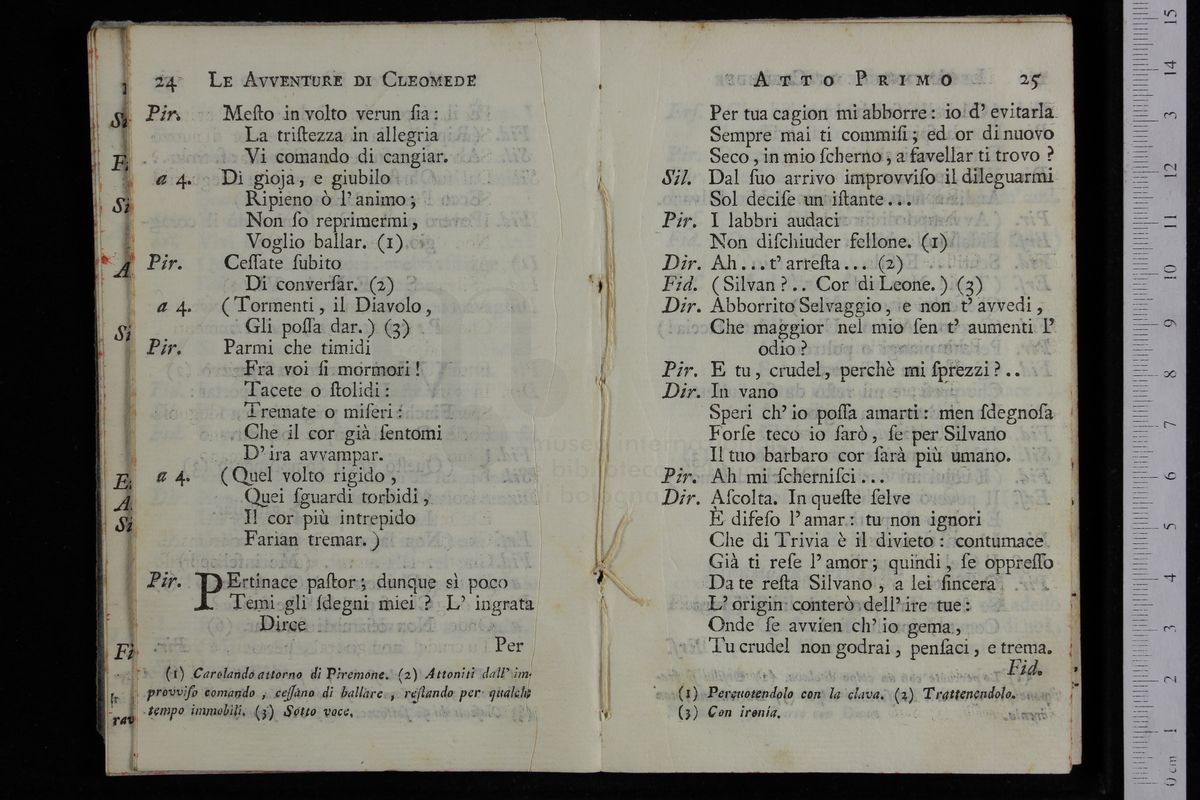 24 LE AVVENTURE DI CLEOMEDE
Pir. Meſto in volto verun ſia:
La triſtezza in allegria
Vi comando di cangiar.
a 4. Di gioja, e giubilo
Ripieno ò l'animo;
Non ſo reprimermi,
Voglio ballar. (1)
Pir. Ceſſate ſubito
Di converſar. (2)
a 4. (Tormenti, il Diavolo,
Gli poſſa dar.) (3)
Pir. Parmi che timidi
Fra voi ſi mormori!
Tacete o ſtolidi:
Tremate o miſeri:
Che il cor già ſentomi
D'ira avvampar.
a 4. (Quel volto rigido,
Quei ſguardi torbidi,
Il cor più intrepido
Farian tremar.)
Pir. PErtinace paſtor; dunque sì poco
Temi gli ſdegni miei? L'ingrata
Dirce
Per
(1) Carolando attorno di Piremone. (2) Attoniti dall'im-
provviſo comando, ceſſano di ballare, reſtando per qualche
tempo immobili. (3) Sotto voce.
ATTO PRIMO 25
Per tua cagion mi abborre: io d'evitarla
Sempre mai ti commiſi; ed or di nuovo
Seco, in mio ſcherno, a favellar ti trovo?
Sil. Dal ſuo arrivo improvviſo il dileguarmi
Sol deciſe un iſtante...
Pir. I labbri audaci
Non diſchiuder fellone. (1)
Dir. Ah...t'arreſta... (2)
Fid. (Silvan?.. Cor di Leone.) (3)
Dir. Abborrito Selvaggio, e non t'avvedi,
Che maggior nel mio ſen t'aumenti l'
odio?
Pir. E tu, crudel, perchè mi ſprezzi?..
Dir. In vano
Speri ch'io poſſa amarti: men ſdegnoſa
Forſe teco io ſarò, ſe per Silvano
Il tuo barbaro cor ſarà più umano.
Pir. Ah mi ſcherniſci...
Dir. Aſcolta. In queſte ſelve
È difeſo l'amar: tu non ignori
Che di Trivia è il divieto: contumace
Già ti reſe l'amor; quindi, ſe oppreſſo
Da te reſta Silvano, a lei ſincera
L'origin conterò dell'ire tue:
Onde ſe avvien ch'io gema,
Tu crudel non godrai, penſaci, e trema.
Fid.
(1) Perquotendolo con la clava. (2) Trattenendolo.
(3) Con ironia.